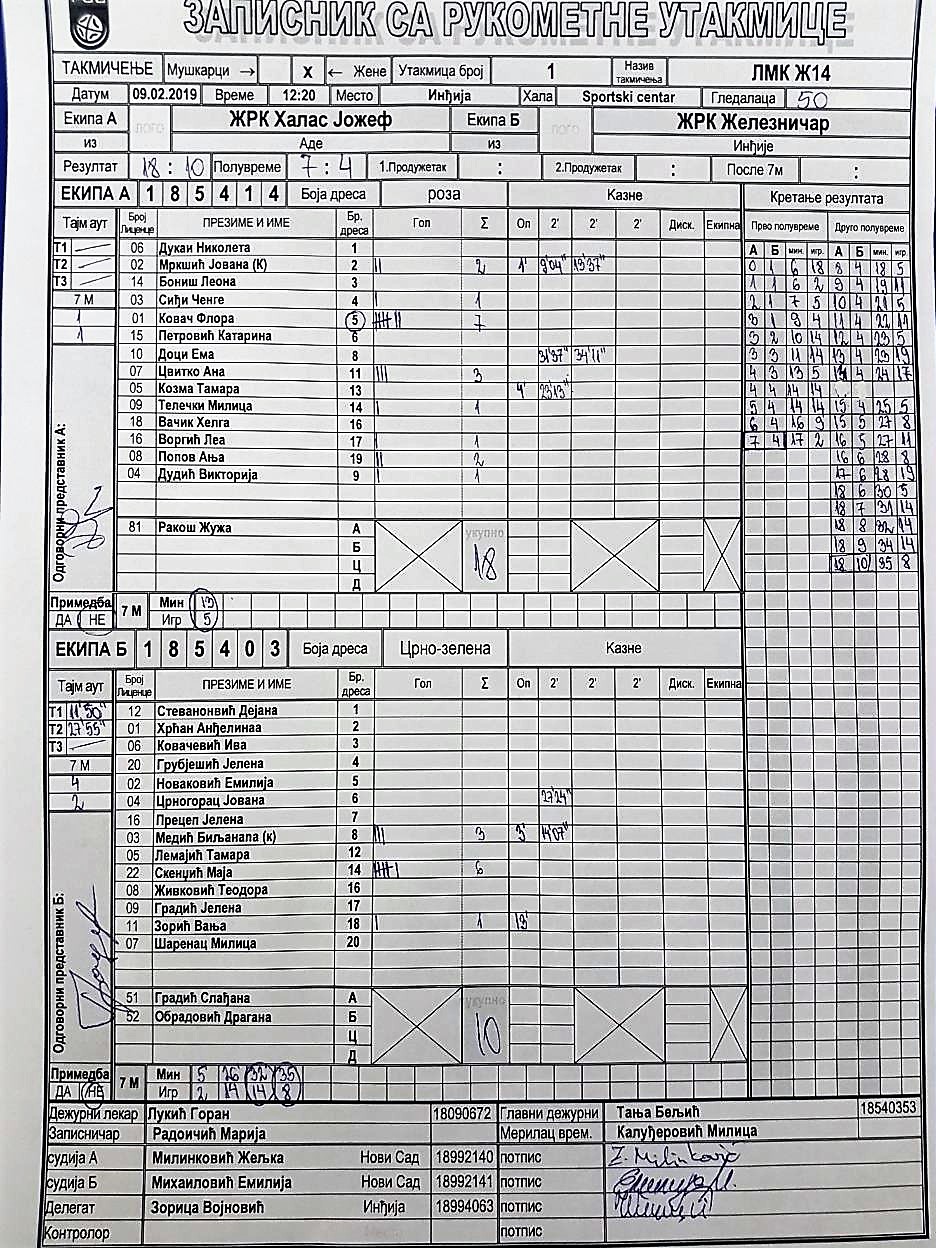 ЗАПИСНИК СА РУКОМЕТНЕ УТАКМИЦЕ
ТАКМИЧЕЊЕ Мушкарци → X ← Жене Утакмица број 1 Назив такмичења ЛМК Ж14
Датум 09.02.2019 Време 12:20 Место Инђија Хала Sportski centar Гледалаца 50
Екипа А ЛОГО ЖРК Халас Јожеф Екипа Б ЛОГО ЖРК Железничар
из Аде из Инђије
Резултат 18 : 10 Полувреме 7 : 4 1.Продужетак : 2.Продужетак : После 7м :
ЕКИПА А 1 8 5 4 1 4 Боја дреса роза Казне Кретање резултата
Тајм аут Број Лиценце ПРЕЗИМЕ И ИМЕ Бр. дреса Гол Σ Оп 2' 2' 2' Диск. Екипна Прво полувреме Друго полувреме
А Б мин. игр. А Б мин. игр.
Т1 06 Дукаи Николета 1
0 1 6 18 8 4 18 5
Т2 02 Мркшић Јована (К) 2 II 2 1' 9'04" 13'37"
1 1 6 2 9 4 19 11
Т3 14 Бониш Леона 3
2 1 7 5 10 4 21 5
7 М 03 Сиђи Ченге 4 I 1
3 1 9 4 11 4 22 11
1 01 Ковач Флора 5 IIII II 7
3 2 10 14 12 4 23 5
1 15 Петровић Катарина 6
3 3 11 14 13 4 23 19
10 Доци Ема 8 31'37" 34'11"
4 3 13 5 14 4 24 17
07 Цвитко Ана 11 III 3
4 4 14 14
05 Козма Тамара 13 4' 23'13"
5 4 14 14 15 4 25 5
09 Телечки Милица 14 I 1
6 4 16 9 15 5 27 8
18 Вачик Хелга 16
7 4 17 2 16 5 27 11
16 Воргић Леа 17 I 1
16 6 28 8
08 Попов Ања 19 II 2
17 6 28 19
04 Дудић Викторија 9 I 1
18 6 30 5
18 7 31 14
18 8 32 14
18 9 34 14
18 10 35 8
Одговорни представник А:
81 Ракош Жужа А укупно 18
Б
Ц
Д
Примедба ДА НЕ 7 М Мин 13
Игр 5
ЕКИПА Б 1 8 5 4 0 3 Боја дреса Црно-зелена Казне
Тајм аут Број Лиценце ПРЕЗИМЕ И ИМЕ Бр. дреса Гол Σ Оп 2' 2' 2' Диск. Екипна
Т1 11'50" 12 Стеванонвић Дејана 1
Т2 27'55" 01 Хрћан Анђелинаа 2
Т3 06 Ковачевић Ива 3
7 М 20 Грубјешић Јелена 4
4 02 Новаковић Емилија 5
2 04 Црногорац Јована 6 27'24"
16 Прецел Јелена 7
03 Медић Биљанапа (к) 8 III 3 3' 14'07"
05 Лемајић Тамара 12
22 Скенџић Маја 14 IIII I 6
08 Живковић Теодора 16
09 Градић Јелена 17
11 Зорић Вања 18 I 1 13'
07 Шаренац Милица 20
Одговорни представник Б:
51 Градић Слађана А укупно 10
52 Обрадовић Драгана Б
Ц
Д
Примедба ДА НЕ 7 М Мин 5 26 32 35
Игр 2 14 14 8
Дежурни лекар Лукић Горан 18090672 Главни дежурни Тања Бељић 18540353
Записничар Радоичић Марија Мерилац врем. Калуђеровић Милица
судија А Милинковић Жељка Нови Сад 18992140 потпис Z. Milinković
судија Б Михаиловић Емилија Нови Сад 18992141 потпис
Делегат Зорица Војновић Инђија 18994063 потпис
Контролор потпис